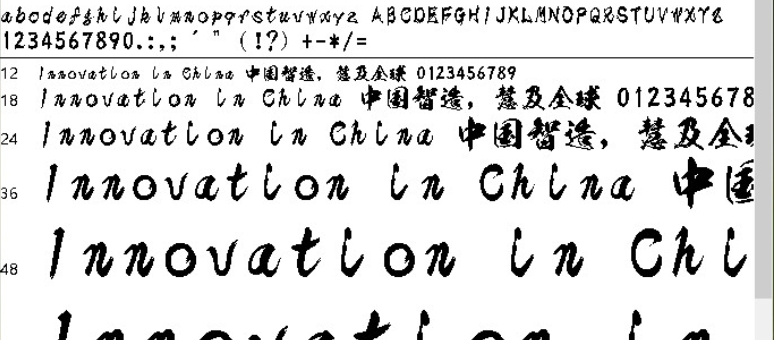 abcdefghijklmnopqrstuvwxyz ABCDEFGHIJKLMNOPQRSTUVWXYZ
1234567890.:,; ' " (!?) +-*/=
12 Innovation in China 中国智造，慧及全球 0123456789
18 Innovation in China 中国智造，慧及全球 012345678
24 Innovation in China 中国智造，慧及全球
36 Innovation in China 中国
48 Innovation in Chi
Innovation in